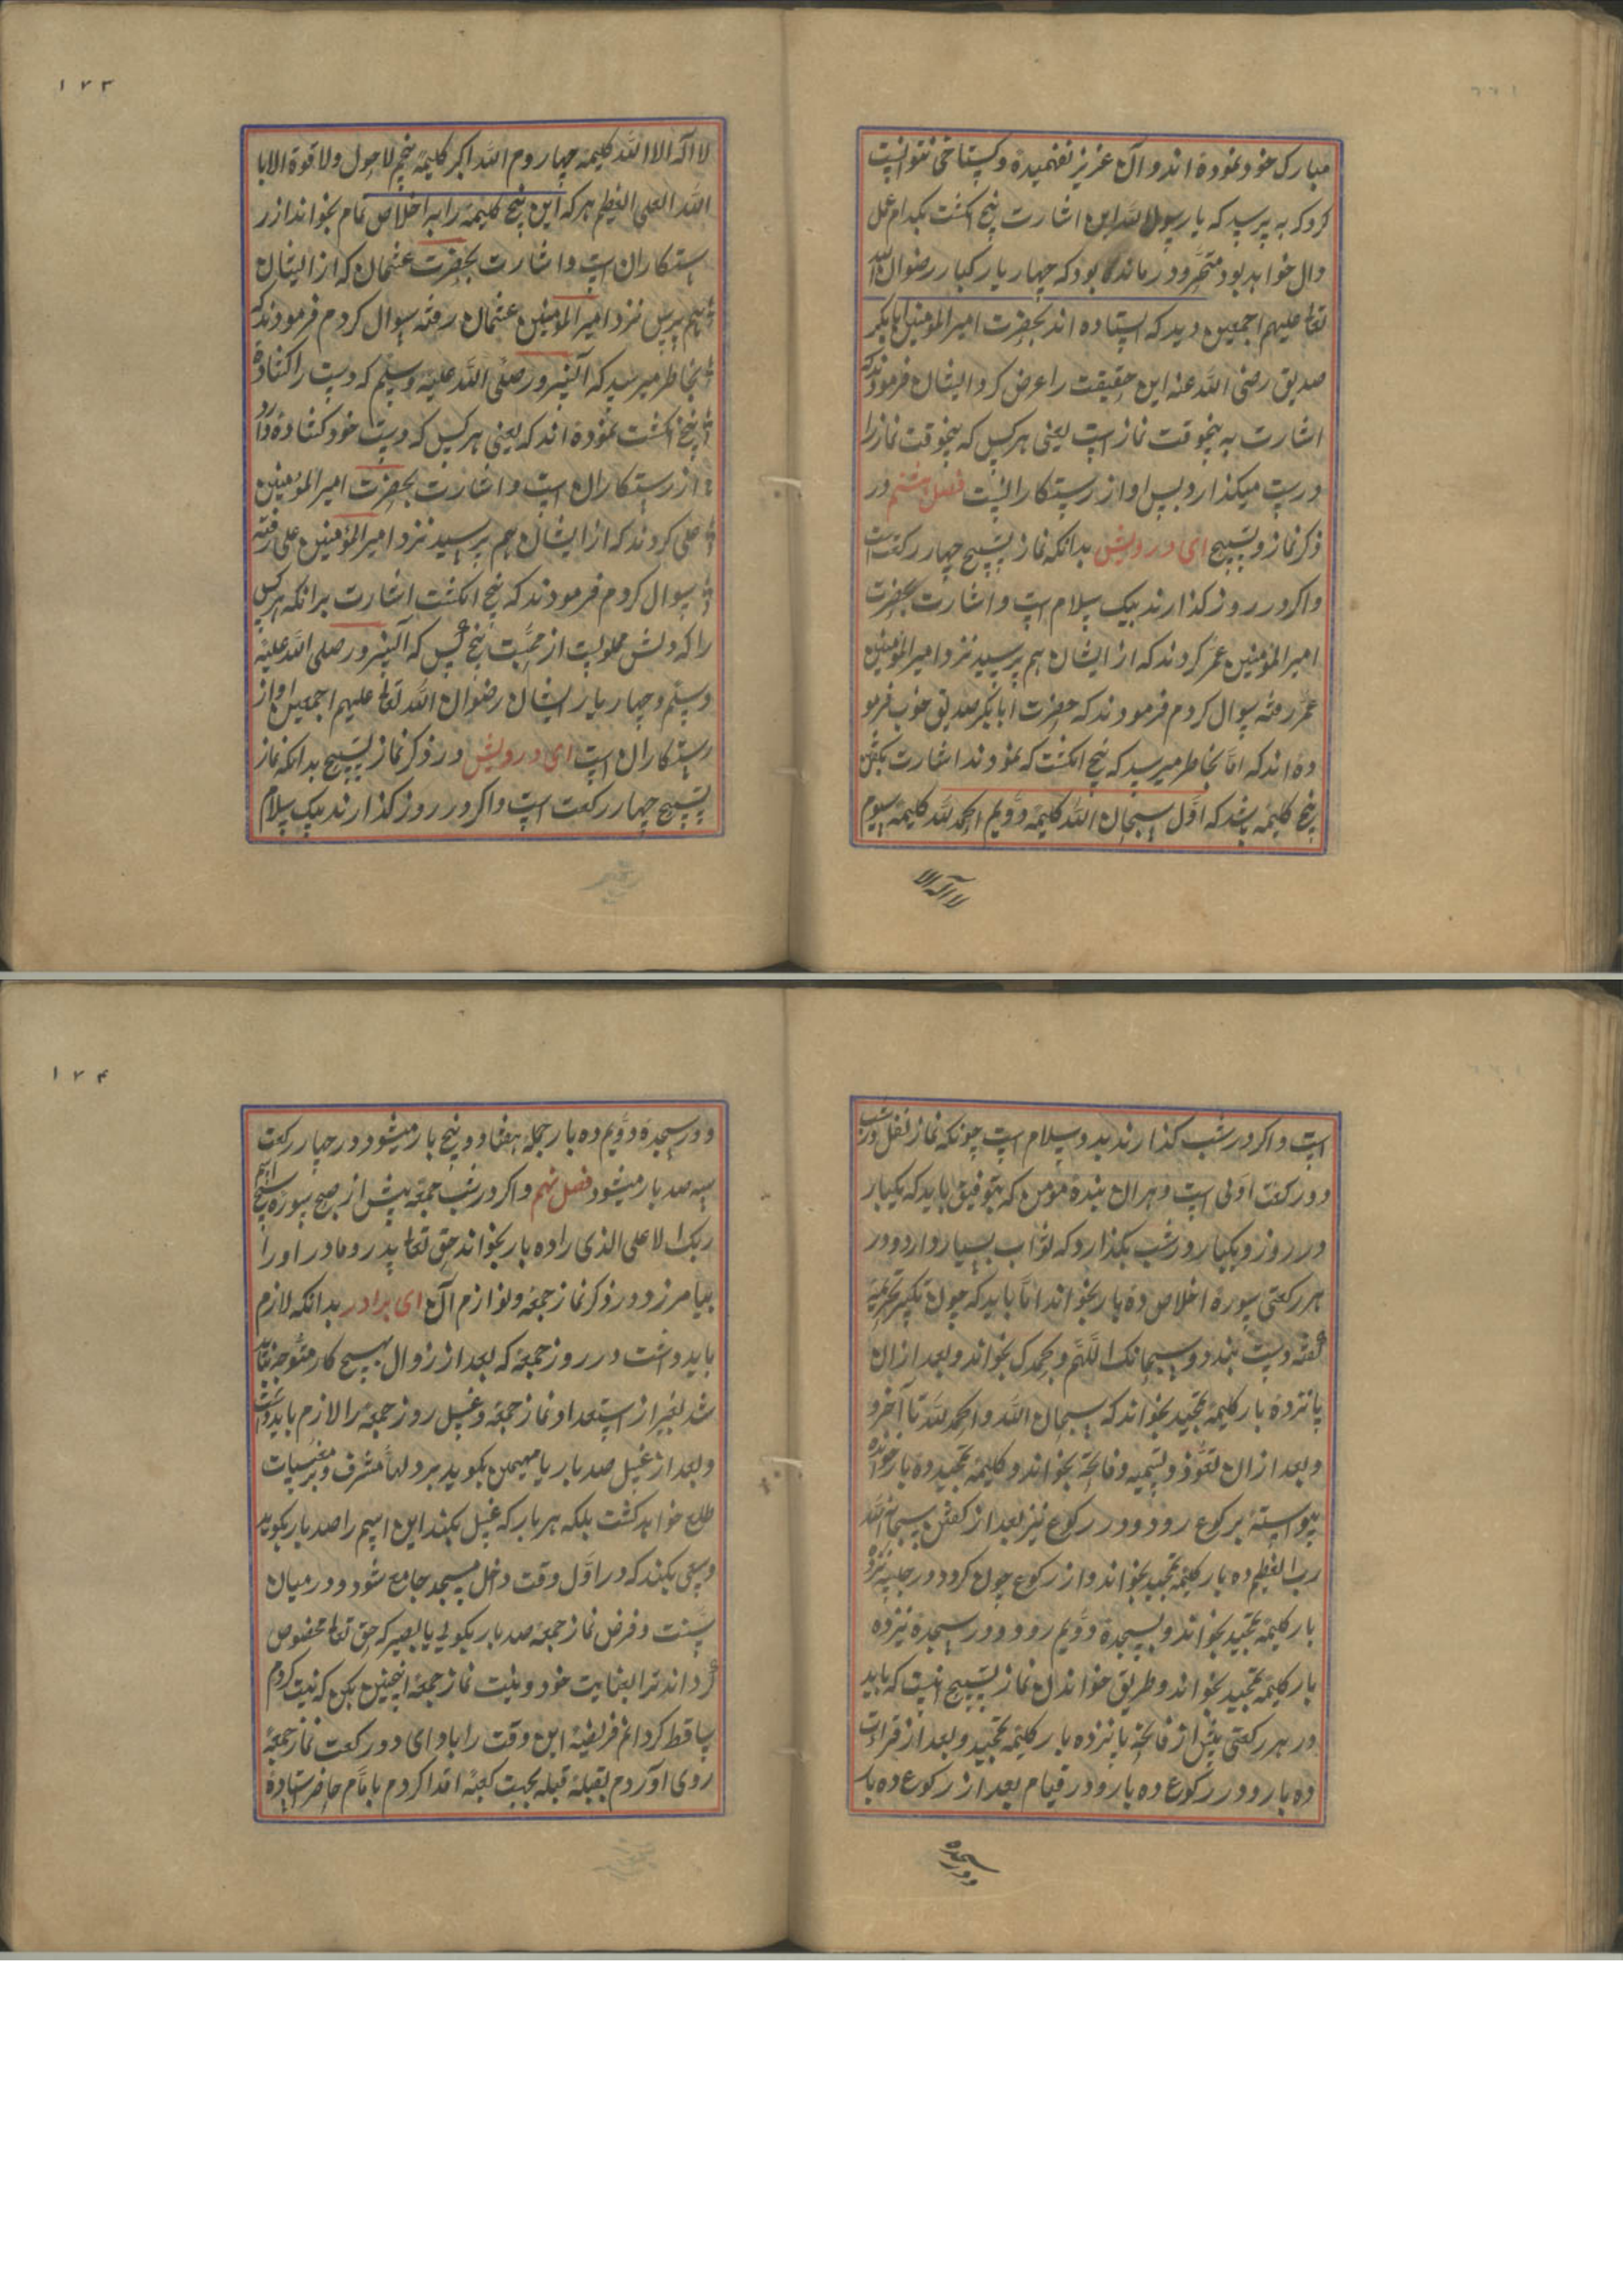 مبارک خود نموده اند و آن عزیز نفهمیده و کستاخی نتوانست
کرد که به پرسد که یا رسول الله این اشارت پنج انکشت بکدام عمل
دال خواهد بود متحیر و درمانده بود که چهار یار کبار رضوان الله
تعالی علیهم اجمعین دید که ایستاده اند بحضرت امیر المؤمنین ابابکر
صدیق رضی الله عنه این حقیقت را عرض کرد ایشان فرمودند که
اشارت به پنجوقت نماز است یعنی هر کس که پنجوقت نماز را
درست میکذارد پس او از رستکارانست فصل هشتم در
ذکر نماز و تسبیح ای درویش بدانکه نماز تسبیح چهار رکعت است
و اکر در روز کذارند بیک سلام است و اشارت بحضرت
امیر المؤمنین عمر کردند که از ایشان هم پرسید نزد امیر المؤمنین
عمر رفته سوال کردم فرمودند که حضرت ابابکر صدیق خوب فرمو
ده اند که اما بخاطر میرسد که پنج انکشت که نمودند اشارت بکفتن
پنج کلیمه باشد که اول سبحان الله کلیمه دویم الحمد لله کلیمه سیوم
لا اله الا
۱۷۳
لا اله الا الله کلیمه چهاروم الله اکبر کلیمه پنجم لا حول ولا قوة الا با
الله العلی العظیم هر که این پنج کلیمه را به اخلاص تمام بخواند از ر
ستکاران است و اشارت بحضرت عثمان که از ایشان
هم بپرس نزد امیر المؤمنین عثمان رفته سوال کردم فرمودند که
بخاطر میرسد که آنسرور صلی الله علیه وسلم که دست را کشاده
پنج انکشت نموده اند که یعنی هر کس که دست خود کشاده دارد
از رستکاران است و اشارت بحضرت امیر المؤمنین
علی کردند که از ایشان هم پرسید نزد امیر المؤمنین علی رفته
سوال کردم فرمودند که پنج انکشت اشارت برانکه هر کس
را که دلش مملوست از محبت پنج کس که آنسرور صلی الله علیه
وسلم و چهار یار ایشان رضوان الله تعالی علیهم اجمعین او از
رستکاران است ای درویش در ذکر نماز تسبیح بدانکه نماز
تسبیح چهار رکعت است و اکر در روز کذارند بیک سلام
است و اکر در شب کذارند بدو سلام است چونکه نماز نفل در شب
دو رکعت اولی است و هر ان بنده مؤمن که بتوفیق باید که یکبار
در روز و یکبار در شب بکذارد که ثواب بسیار دارد و در
هر رکعتی سوره اخلاص ده بار بخواند اما باید که چون تکبیر تحریمه
کفته دست بندد و سبحانک اللهم وبحمدک بخواند و بعد ازان
پانزده بار کلیمه تمجید بخواند که سبحان الله والحمد لله تا آخر و
و بعد ازان تعوذ و تسمیه و فاتحه بخواند و کلیمه تمجید ده بار خوانده
پیوسته برکوع رود و در رکوع نیز بعد از کفتن سبحان الله
رب العظیم ده بار کلیمه تمجید بخواند و از رکوع چون کرد در جلسه نیز ده
بار کلیمه تمجید بخواند و بسجده دویم رود و در سجده نیز ده
بار کلیمه تمجید بخواند و طریق خواندن نماز تسبیح انست که باید
در هر رکعتی پیش از فاتحه پانزده بار کلیمه تمجید و بعد از قرات
ده بار و در رکوع ده بار و در قیام بعد از رکوع ده بار
سجده
۱۷۴
و در سجده دویم ده بار جمله هفتاد و پنج بار میشود در چهار رکعت
سه صد بار میشود فصل نهم و اکر در شب جمعه پیش از صبح سوره سبح اسم
ربک الاعلی الذی را ده بار بخواند حق تعالی پدر و مادر او را
بیامرزد در ذکر نماز جمعه و لوازم آن ای برادر بدانکه لازم
باید داشت در روز جمعه که بعد از زوال بهیچ کار متوجه نباید
شد بغیر از استعداد نماز جمعه و غسل روز جمعه را لازم باید داشت
و بعد از غسل صد بار یا مهیمن بکوید بر دلها مشرف و بر مغیبات
مطلع خواهد کشت بلکه هر بار که غسل بکند این اسم را صد بار بکوید
و سعی بکند که در اول وقت داخل مسجد جامع شود و در میان
سنت و فرض نماز جمعه صد بار بکوئی یا بصیر که حق تعالی مخصوص
کرداند ترا بعنایت خود و نیت نماز جمعه اینچنین بکن که نیت کردم
ساقط کردانم فریضه این وقت را بادای دو رکعت نماز جمعه
روی آوردم بقبله قبله بجهت کعبه اقتدا کردم باامام حاضر ستاده